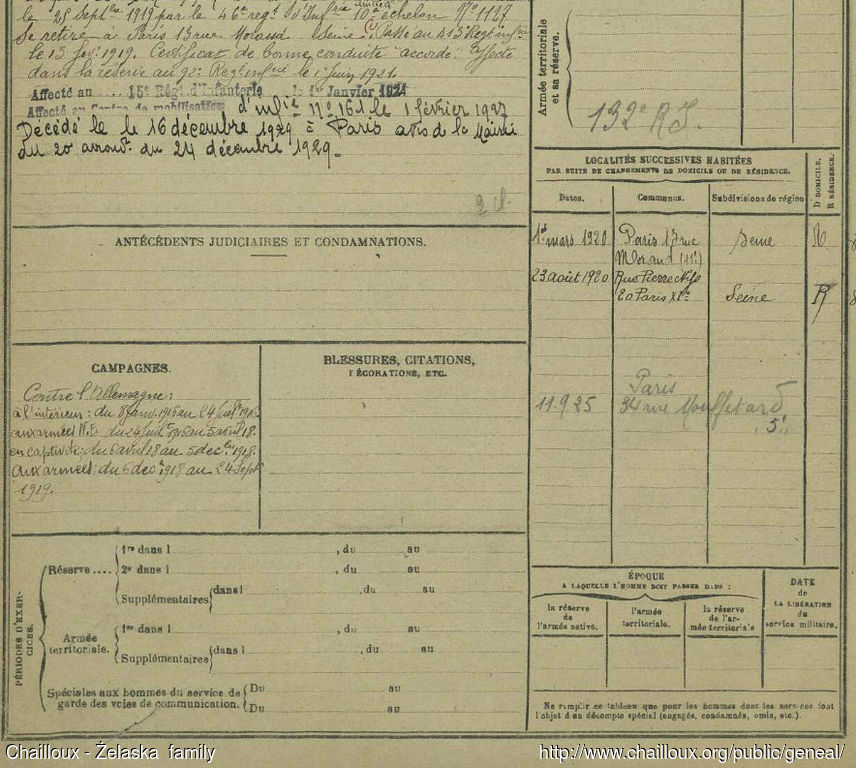 le 25 Septbre 1919 par le 46e régt d'Infrie 10e échelon No 1127
Se retire à Paris 13 rue Morand Seine Passé au 413e Régt infie
le 13 1919. Certificat de bonne conduite "accordé". Affecté
dans la réserve au 92e Régt infrie le 1er juin 1921.
Affecté au .... 15e Régt d'Infanterie le 1er Janvier 1924
Affecté au Centre de mobilisation d'infie No 161 le 1 février 1927
Décédé le le 16 décembre 1929 à Paris avis de la Mairie
du 20e arrondt du 24 décembre 1929.
ANTÉCÉDENTS JUDICIAIRES ET CONDAMNATIONS.
CAMPAGNES.
Contre l'Allemagne:
à l'intérieur: du 8 janv. 1916 au 24 juil. 1916
aux armées N.E. du 24 juil. 1916 au 5 avril 18.
en captivité: du 6 avril 18 au 5 décbre 1918.
aux armées: du 6 déc 1918 au 24 Sept
1919.
BLESSURES, CITATIONS,
DÉCORATIONS, ETC.
PÉRIODES D'EXERCICES.
Réserve ....
1re dans l , du au
2e dans l , du au
Supplémentaires dans l , du au
Armée
territoriale.
1re dans l , du au
Supplémentaires dans l , du au
Spéciales aux hommes du service de
garde des voies de communication.
Du au
Du au
Armée territoriale
et sa réserve.
132e R.I.
LOCALITÉS SUCCESSIVES HABITÉES
PAR SUITE DE CHANGEMENTS DE DOMICILE OU DE RÉSIDENCE.
Dates. Communes. Subdivisions de région
D DOMICILE.
R RÉSIDENCE.
1er mars 1920 Paris 13 rue Seine R.
Morand (11e)
23 août 1920 Rue Pierre Nys
20 Paris XIe Seine R
Paris
11.9.25 34 rue Mouffetard
5e
ÉPOQUE
A LAQUELLE L'HOMME DOIT PASSER DANS :
la réserve
de
l'armée active.
l'armée
territoriale.
la réserve
de l'ar-
mée territoriale
DATE
de
LA LIBÉRATION
du
service militaire.
Ne remplir ce tableau que pour les hommes dont les services font
l'objet d'un décompte spécial (engagés, condamnés, omis, etc.).
Chailloux - Żelaska family
http://www.chailloux.org/public/geneal/